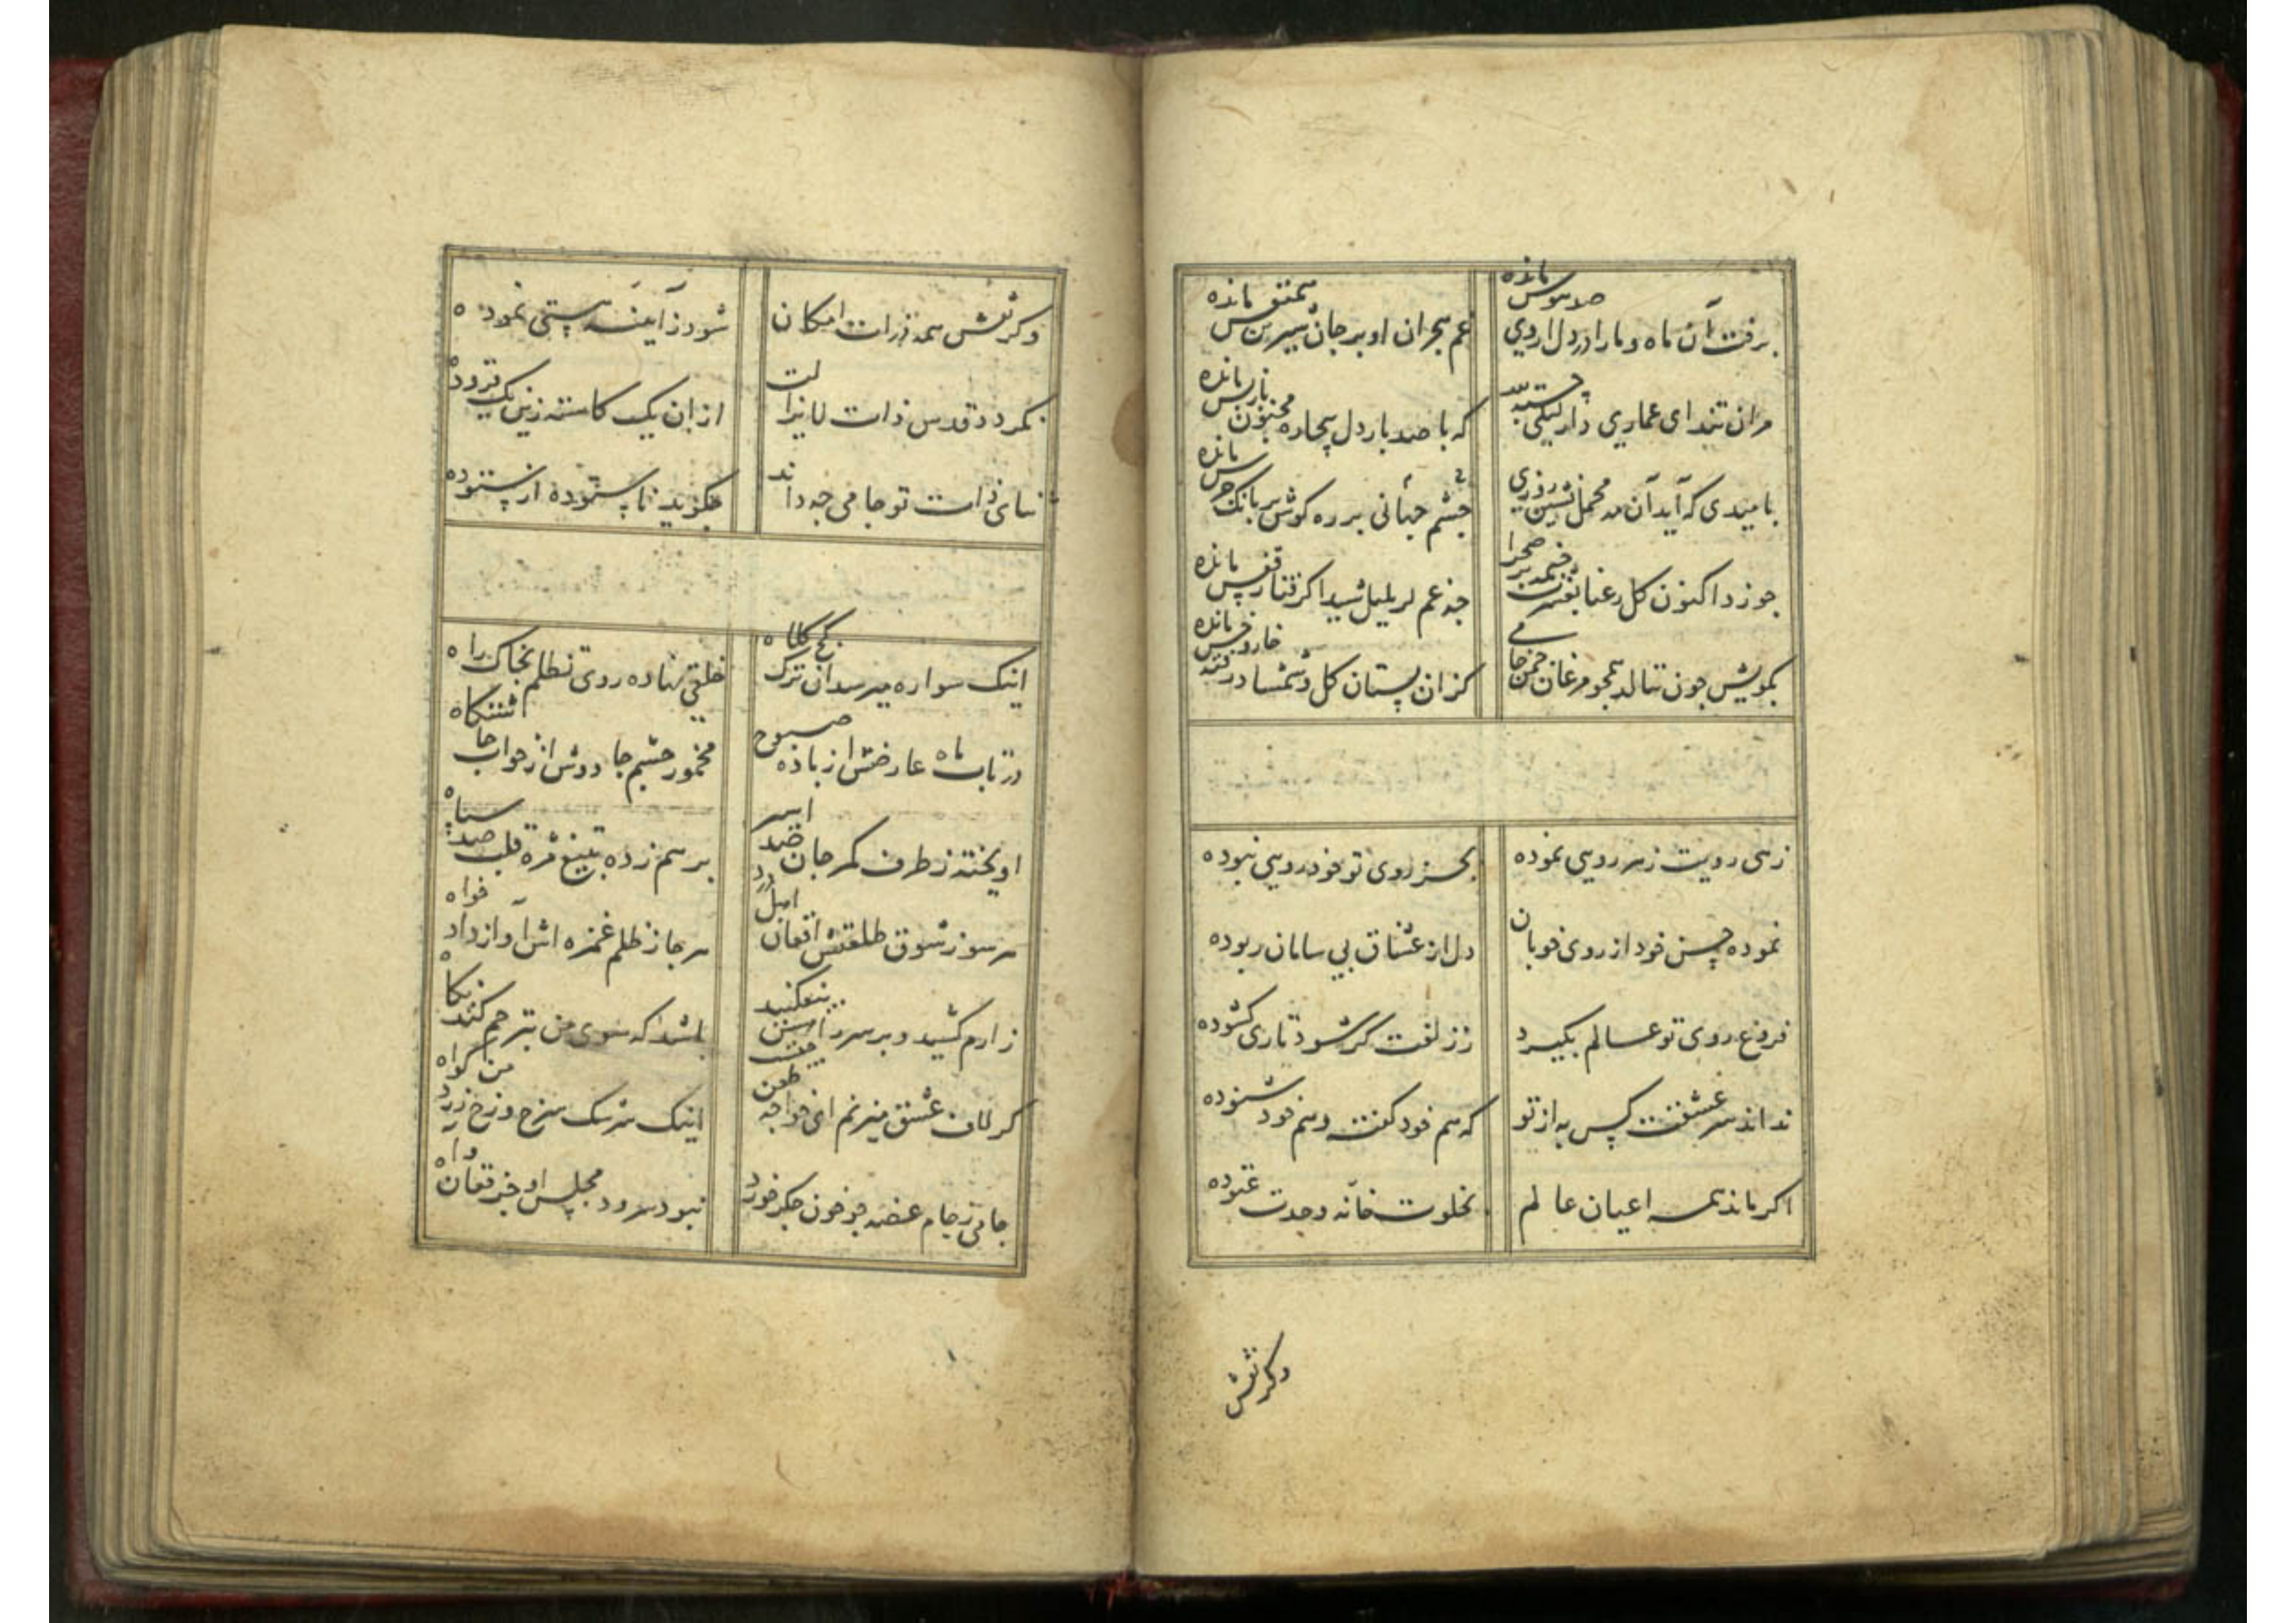 برفت آن ماه و ما را در دل از وی صد هوس مانده
غم هجران او بر جان شیرین همنفس مانده
مران تند ای عماری دار لیلی
که با صد بار دل بیچاره مجنون باز پس مانده
بامیدی که آید آن مه محمل نشین روزی
چشم جهانی بر ره و کوش بر بانک جرس مانده
جو زد اکنون کل رعنا بصحرا
جه غم کر بلبل شیدا کرفتار قفس مانده
بکویش جون ننالد همجو مرغان جمن جامی
کزان بستان کل و شمشاد رفته خار و خس مانده
زهی رویت ز هر رویی نموده
بجز روی تو خود رویی نبوده
نموده حسن خود از روی خوبان
دل از عشاق بی سامان ربوده
فروغ روی تو عالم بکیرد
ز زلفت کر شود تاری کشوده
نداند سر عشقت کس به از تو
که هم خود کفته و هم خود شنوده
اکر ماند همه اعیان عالم
بخلوت خانه وحدت غنوده
وکر نقش
وکر نقش همه ذرات امکان
شود ز آیینه هستی نموده
نکردد قدس ذات لایزالت
از ان یک کاسته زین یک فزوده
ثنای ذات تو جامی جه داند
جکوید ناستوده از ستوده
اینک سواره میرسد آن ترک کج کلاه
خلقی نهاده روی تظلم بخاک راه
در تاب ماه عارضش از باده صبوح
مخمور چشم جادوش از خواب جاشتکاه
آویخته ز طرف کمر جان صد اسیر
بر هم زده بتیغ مژه قلب صد سپاه
هر سو ز شوق طلعتش افغان اهل درد
هر جا ز ظلم غمزه اش آواز داد خواه
زارم کشید و بر سر راهش بیفکنید
باشد که سوی من بترحم کند نکاه
کر لاف عشق میزنم ای خواجه طعن جیست
اینک سرشک سرخ و رخ زرد من کواه
جامی ز جام غصه جو خون جکر خورد
نبود سرود مجلس او جز فغان و آه